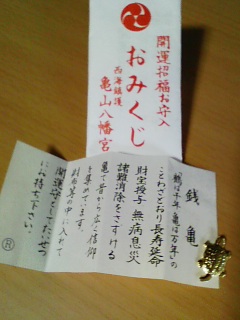 開運招福お守入
おみくじ
西海鎮護
亀山八幡宮
銭亀
「鶴は千年亀は万年」の
ことわざどおり長寿延命
財宝授与 無病息災
諸難消除をさずける
亀で昔から広く信仰
を集めています。
財布の中に入れて
開運守としてたいせつ
にお持ち下さい。